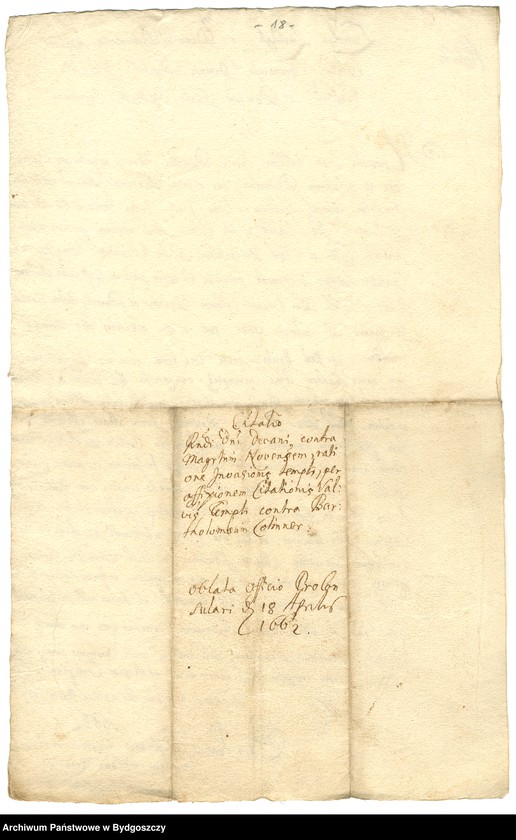 - 18 -
Citatio
Rndi Dni Decani contra
Magrum Novensem, rati
one Invasionis templi, per
affixionem Citationis val-
vis Templi contra Bar-
tholomeum Colinner.
oblata officio Procon
sulari d 18 Aprilis
1662.
Archiwum Państwowe w Bydgoszczy